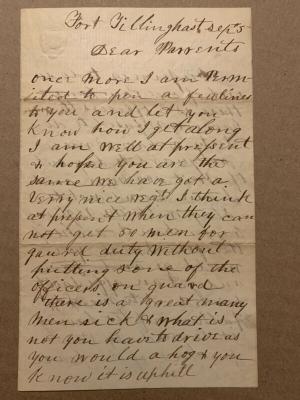 Fort Tillinghast Sep. 5
Dear Parrents
once more I am perm
itted to pen a few lines
to you and let you
know how I get along
I am well at preasent
& hopse you are the
same we have got a
verry nice regt I think
at present when they can
not get 50 men for
gaurd duty without
putting some of the
officers on guard
there is a great many
men sick & what is
not you have to drive as
you would a hog & you
know it is uphill